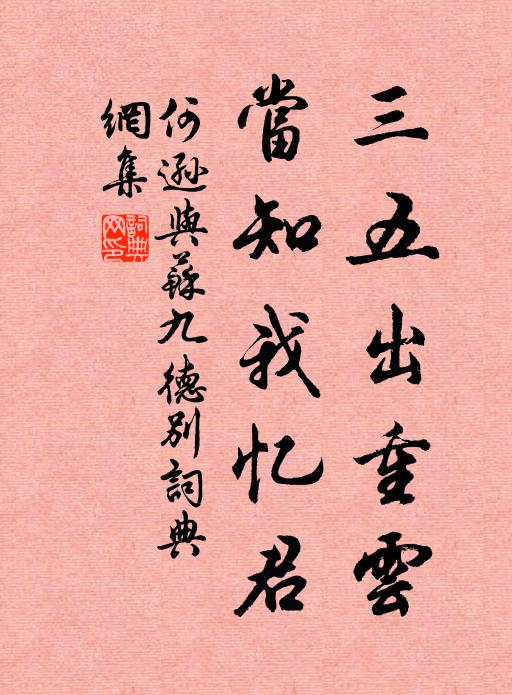 三五出重雲
當知我忆君
何遜與蘇九德別詞典
網集
詞典
网印